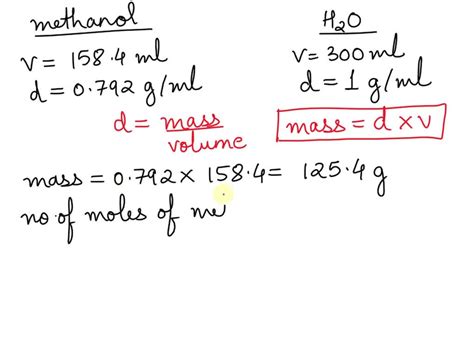 methanol
v = 158.4 ml
d = 0.792 g/ml
H₂O
v = 300 ml
d = 1 g/ml
d = mass
volume
mass = d × v
mass = 0.792 × 158.4 = 125.4 g
no. of moles of me